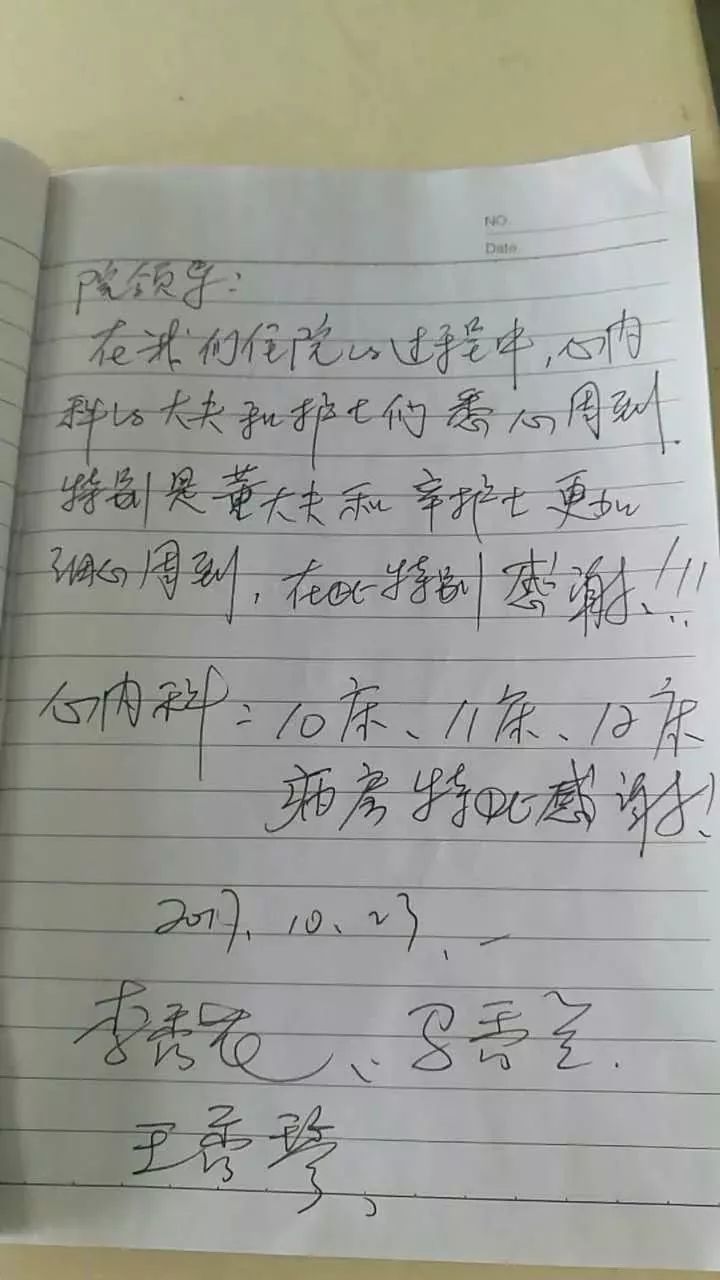 NO.
Date.
院领导:
在我们住院的过程中,心内
科的大夫和护士们悉心周到.
特别是董大夫和辛护士更加
细心周到,在此特别感谢!!!
心内科:10床、11床、12床
病房特此感谢!
2017.10.23.
李秀花、马秀兰.
王秀琴、